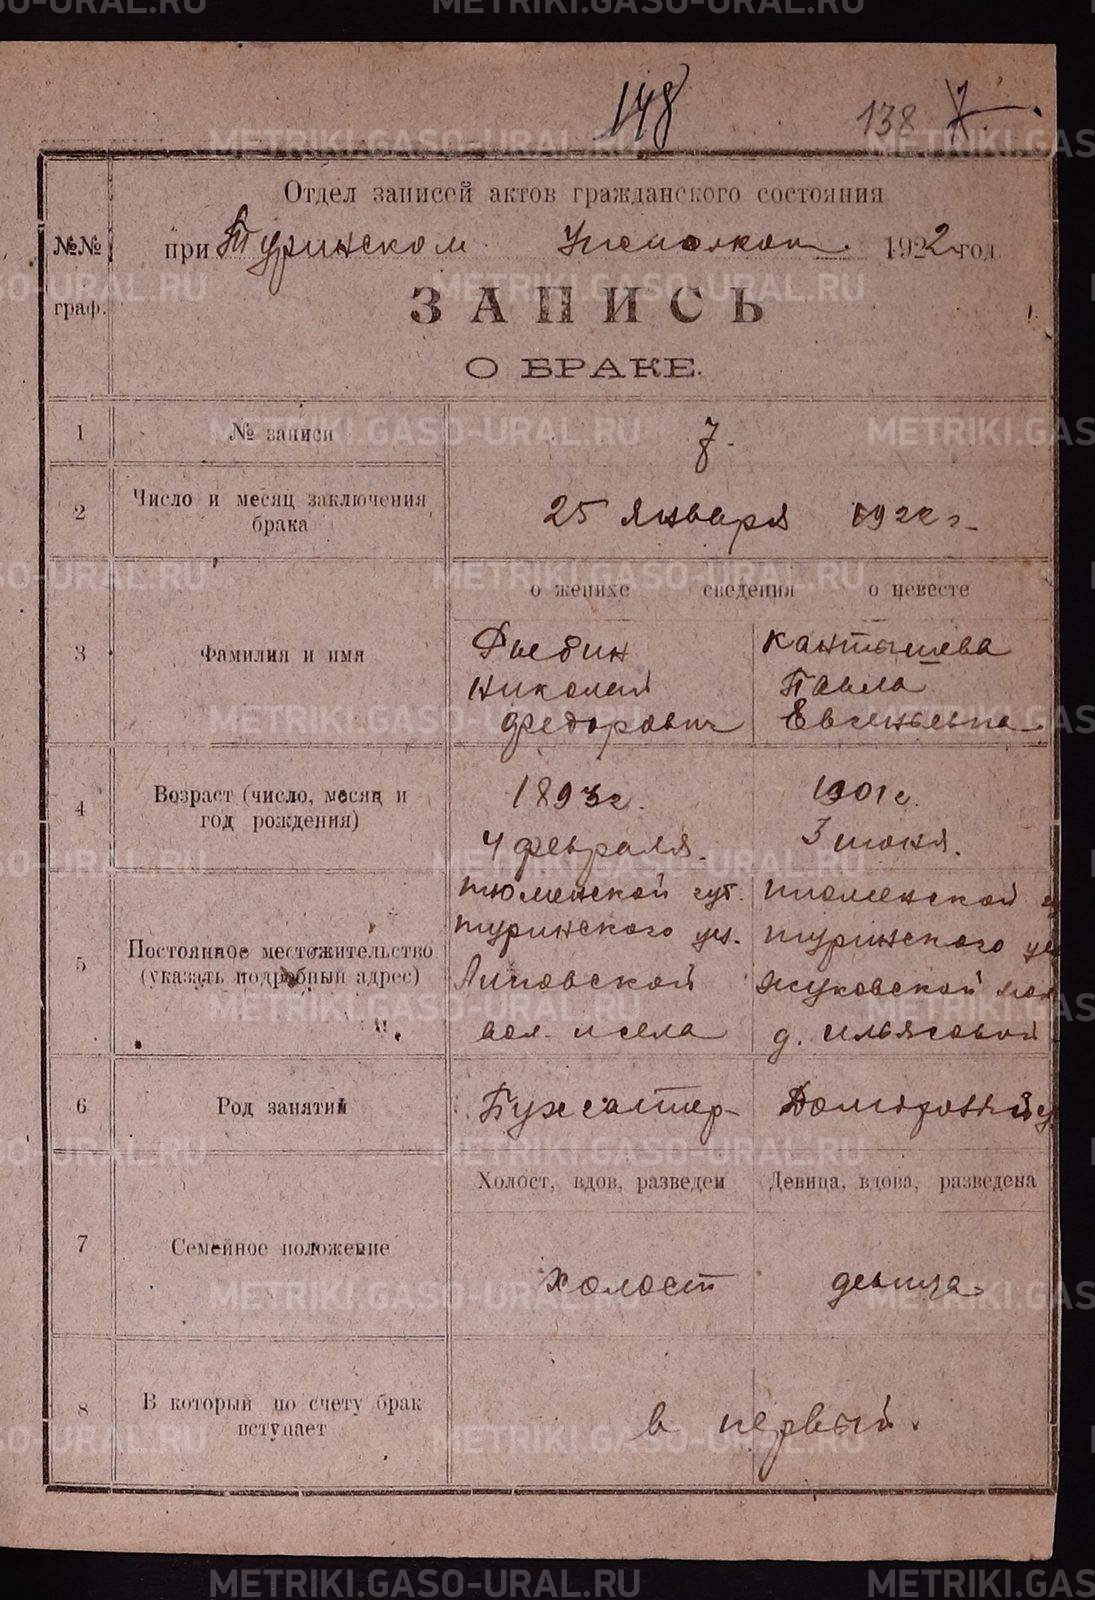 148
138 7
Отдел записей актов гражданского состояния
№№ при Туринском 1922 год
граф.
ЗАПИСЬ
О БРАКЕ.
1 № записи 7.
2 Число и месяц заключения брака 25 января 1922 г.
о женихе сведения о невесте
3 Фамилия и имя
Николай Павла
Федорович Евгеньевна
4 Возраст (число, месяц и год рождения)
1893 г. 1901 г.
4 февраля. 3 июня.
5 Постоянное местожительство (указать подробный адрес)
Тюменской губ. Тюменской
Туринского уез. Туринского
Липовской Жуковской
вол. и села д. Ильясовой
6 Род занятий Бухгалтер
Холост, вдов, разведен Девица, вдова, разведена
7 Семейное положение холост девица
8 В который по счету брак вступает в первый.
METRIKI.GASO-URAL.RU